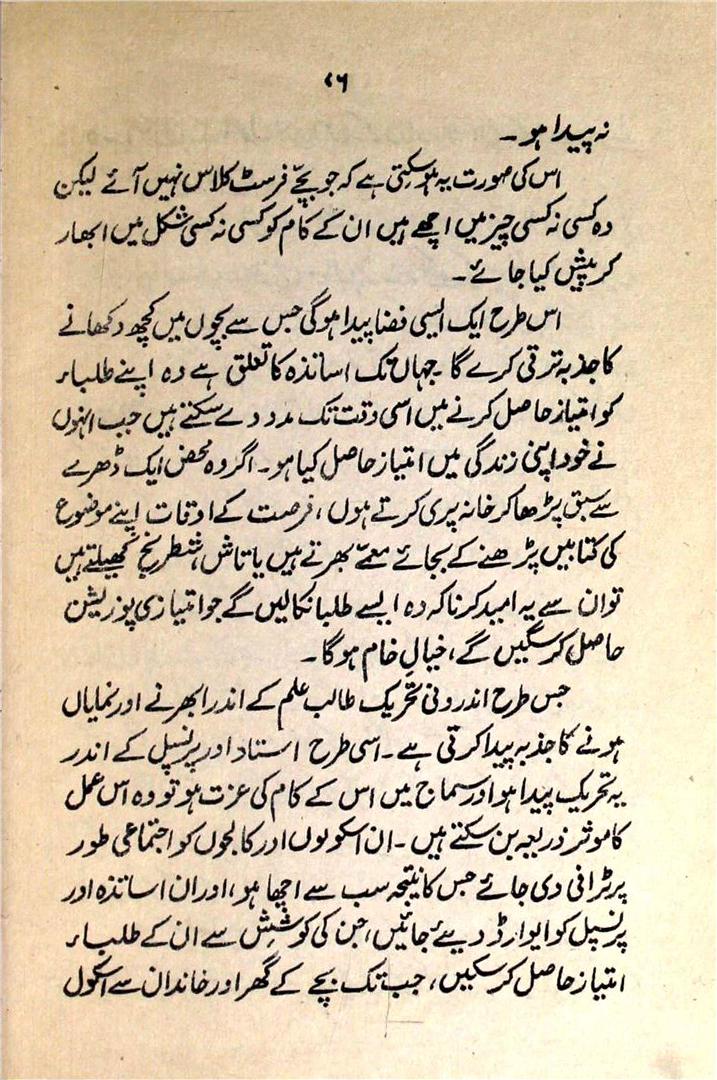 ۷۶
نہ پیدا ہو ۔
اس کی صورت یہ ہو سکتی ہے کہ جو بچے فرسٹ کلاس نہیں آئے لیکن
وہ کسی نہ کسی چیز میں اچھے ہیں ان کے کام کو کسی نہ کسی شکل میں ابھار
کر پیش کیا جائے ۔
اس طرح ایک ایسی فضا پیدا ہوگی جس سے بچوں میں کچھ دکھانے
کا جذبہ ترقی کرے گا ۔ جہاں تک اساتذہ کا تعلق ہے وہ اپنے طلباء
کو امتیاز حاصل کرنے میں اسی وقت تک مدد دے سکتے ہیں جب انہوں
نے خود اپنی زندگی میں امتیاز حاصل کیا ہو ۔ اگر وہ محض ایک ڈھرے
سے سبق پڑھا کر خانہ پری کرتے ہوں ، فرصت کے اوقات اپنے موضوع
کی کتابیں پڑھنے کے بجائے معمے بھرتے ہیں یا تاش، شطرنج کھیلتے ہیں
تو ان سے یہ امید کرنا کہ وہ ایسے طلبا نکالیں گے جو امتیازی پوزیشن
حاصل کر سکیں گے ، خیالِ خام ہوگا ۔
جس طرح اندرونی تحریک طالب علم کے اندر ابھرنے اور نمایاں
ہونے کا جذبہ پیدا کرتی ہے ۔ اسی طرح استاد اور پرنسپل کے اندر
یہ تحریک پیدا ہو اور سماج میں اس کے کام کی عزت ہو تو وہ اس عمل
کا موثر ذریعہ بن سکتے ہیں ۔ ان اسکولوں اور کالجوں کو اجتماعی طور
پر ٹرافی دی جائے جس کا نتیجہ سب سے اچھا ہو ، اور ان اساتذہ اور
پرنسپل کو ایوارڈ دیئے جائیں ، جن کی کوشش سے ان کے طلباء
امتیاز حاصل کر سکیں ، جب تک بچے کے گھر اور خاندان سے اسکول